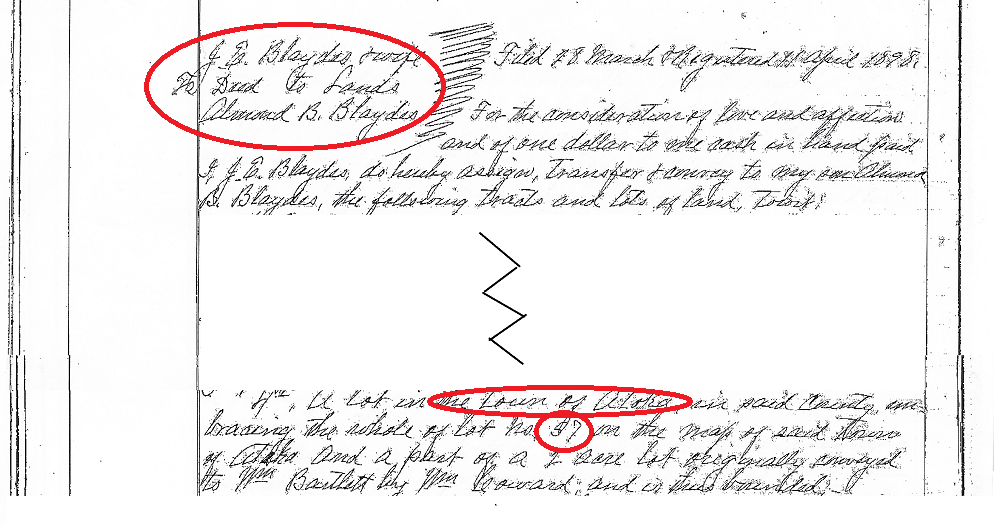 J. E. Blaydes & wife
To Deed to Lands
Almond B. Blaydes
Filed 28 March & Registered April 1898.
For the consideration of love and affection
and of one dollar to me cash in hand paid
I, J. E. Blaydes, do hereby assign, transfer & convey to my son Almond
B. Blaydes, the following tracts and lots of land, towit:
" " 4th, A lot in the town of Atoka, in said County, em-
bracing the whole of lot no. 37 on the map of said town
of Atoka and a part of a 2 acre lot originally conveyed
to Wm Bartlett by Wm Howard; and is thus bounded: